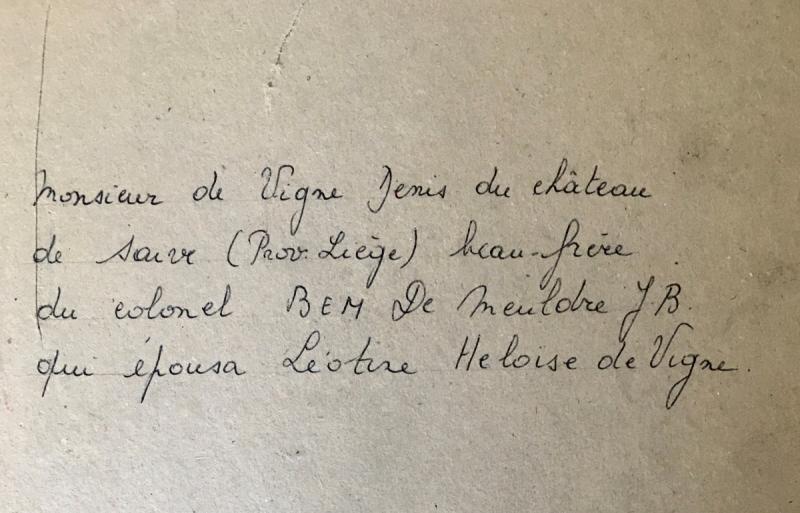 Monsieur de Vigne Denis du château
de Saive (Prov. Liège) beau-frère
du colonel BEM De Meuldre J B.
qui épousa Léotine Heloise de Vigne.